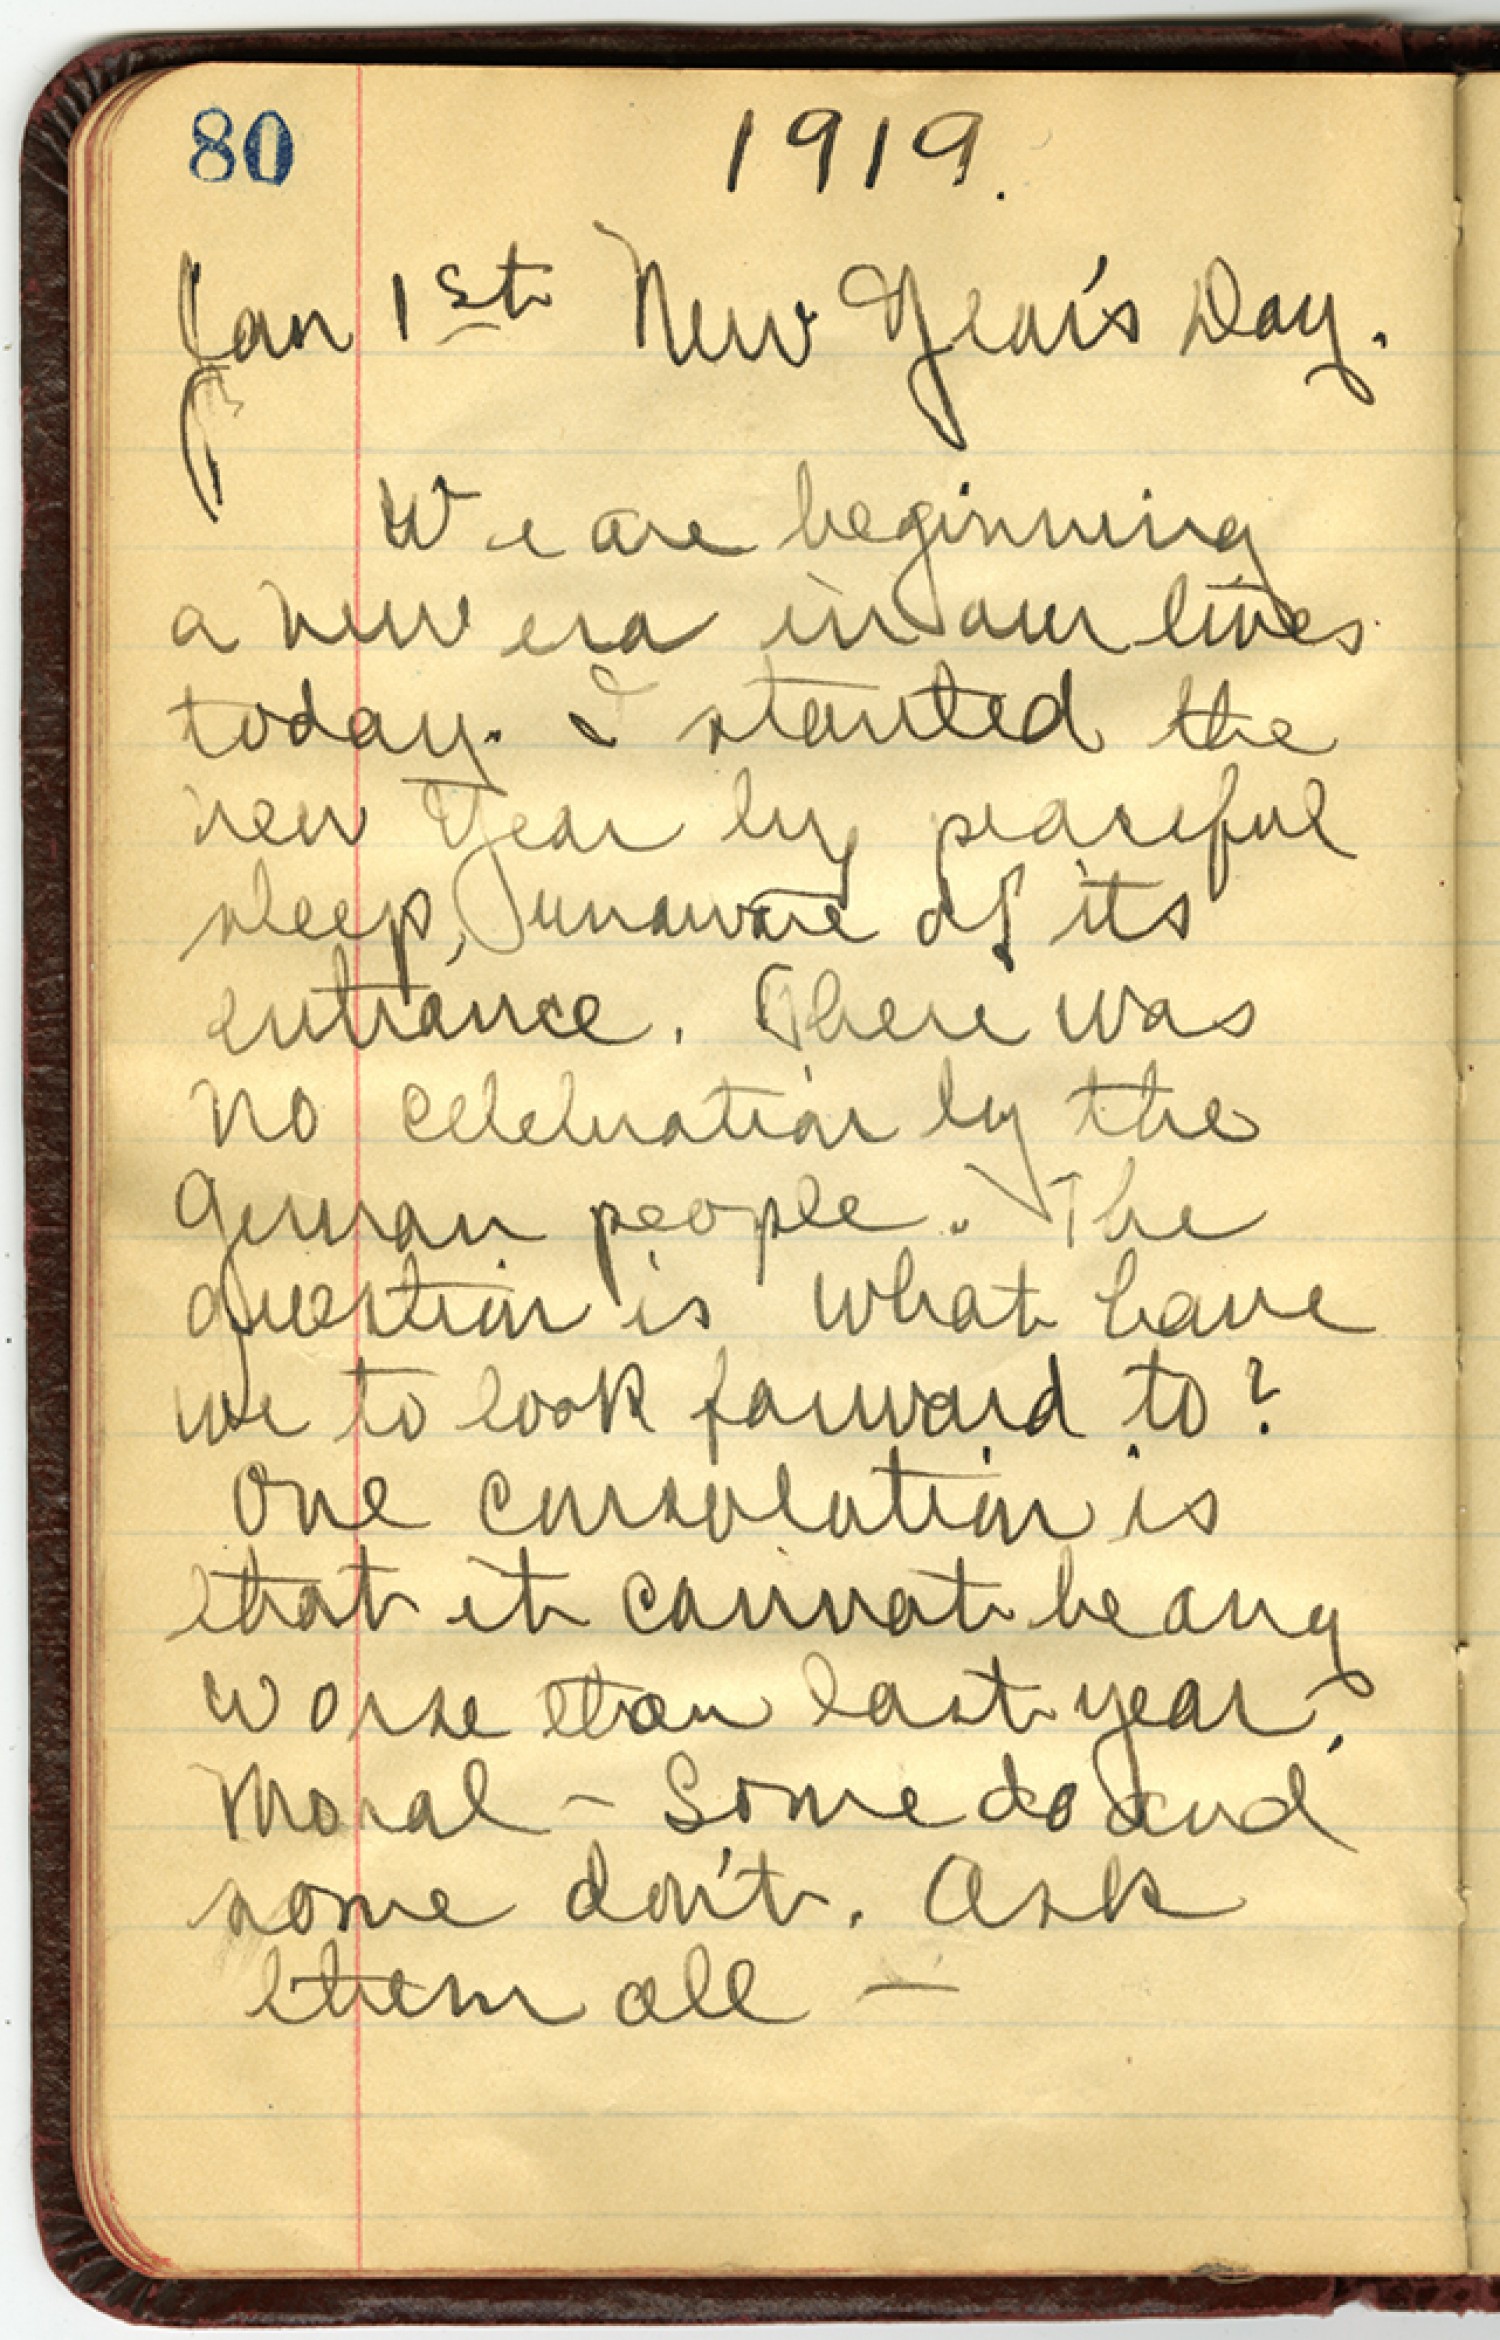 80
1919.
Jan 1st New Year's Day.
We are beginning
a new era in our lives
today. I started the
new Year by peaceful
sleep, unaware of its
entrance. There was
no celebration by the
German people. The
question is what have
we to look forward to?
One consolation is
that it cannot be any
worse than last year.
Moral - Some do and
some don't. Ask
them all —